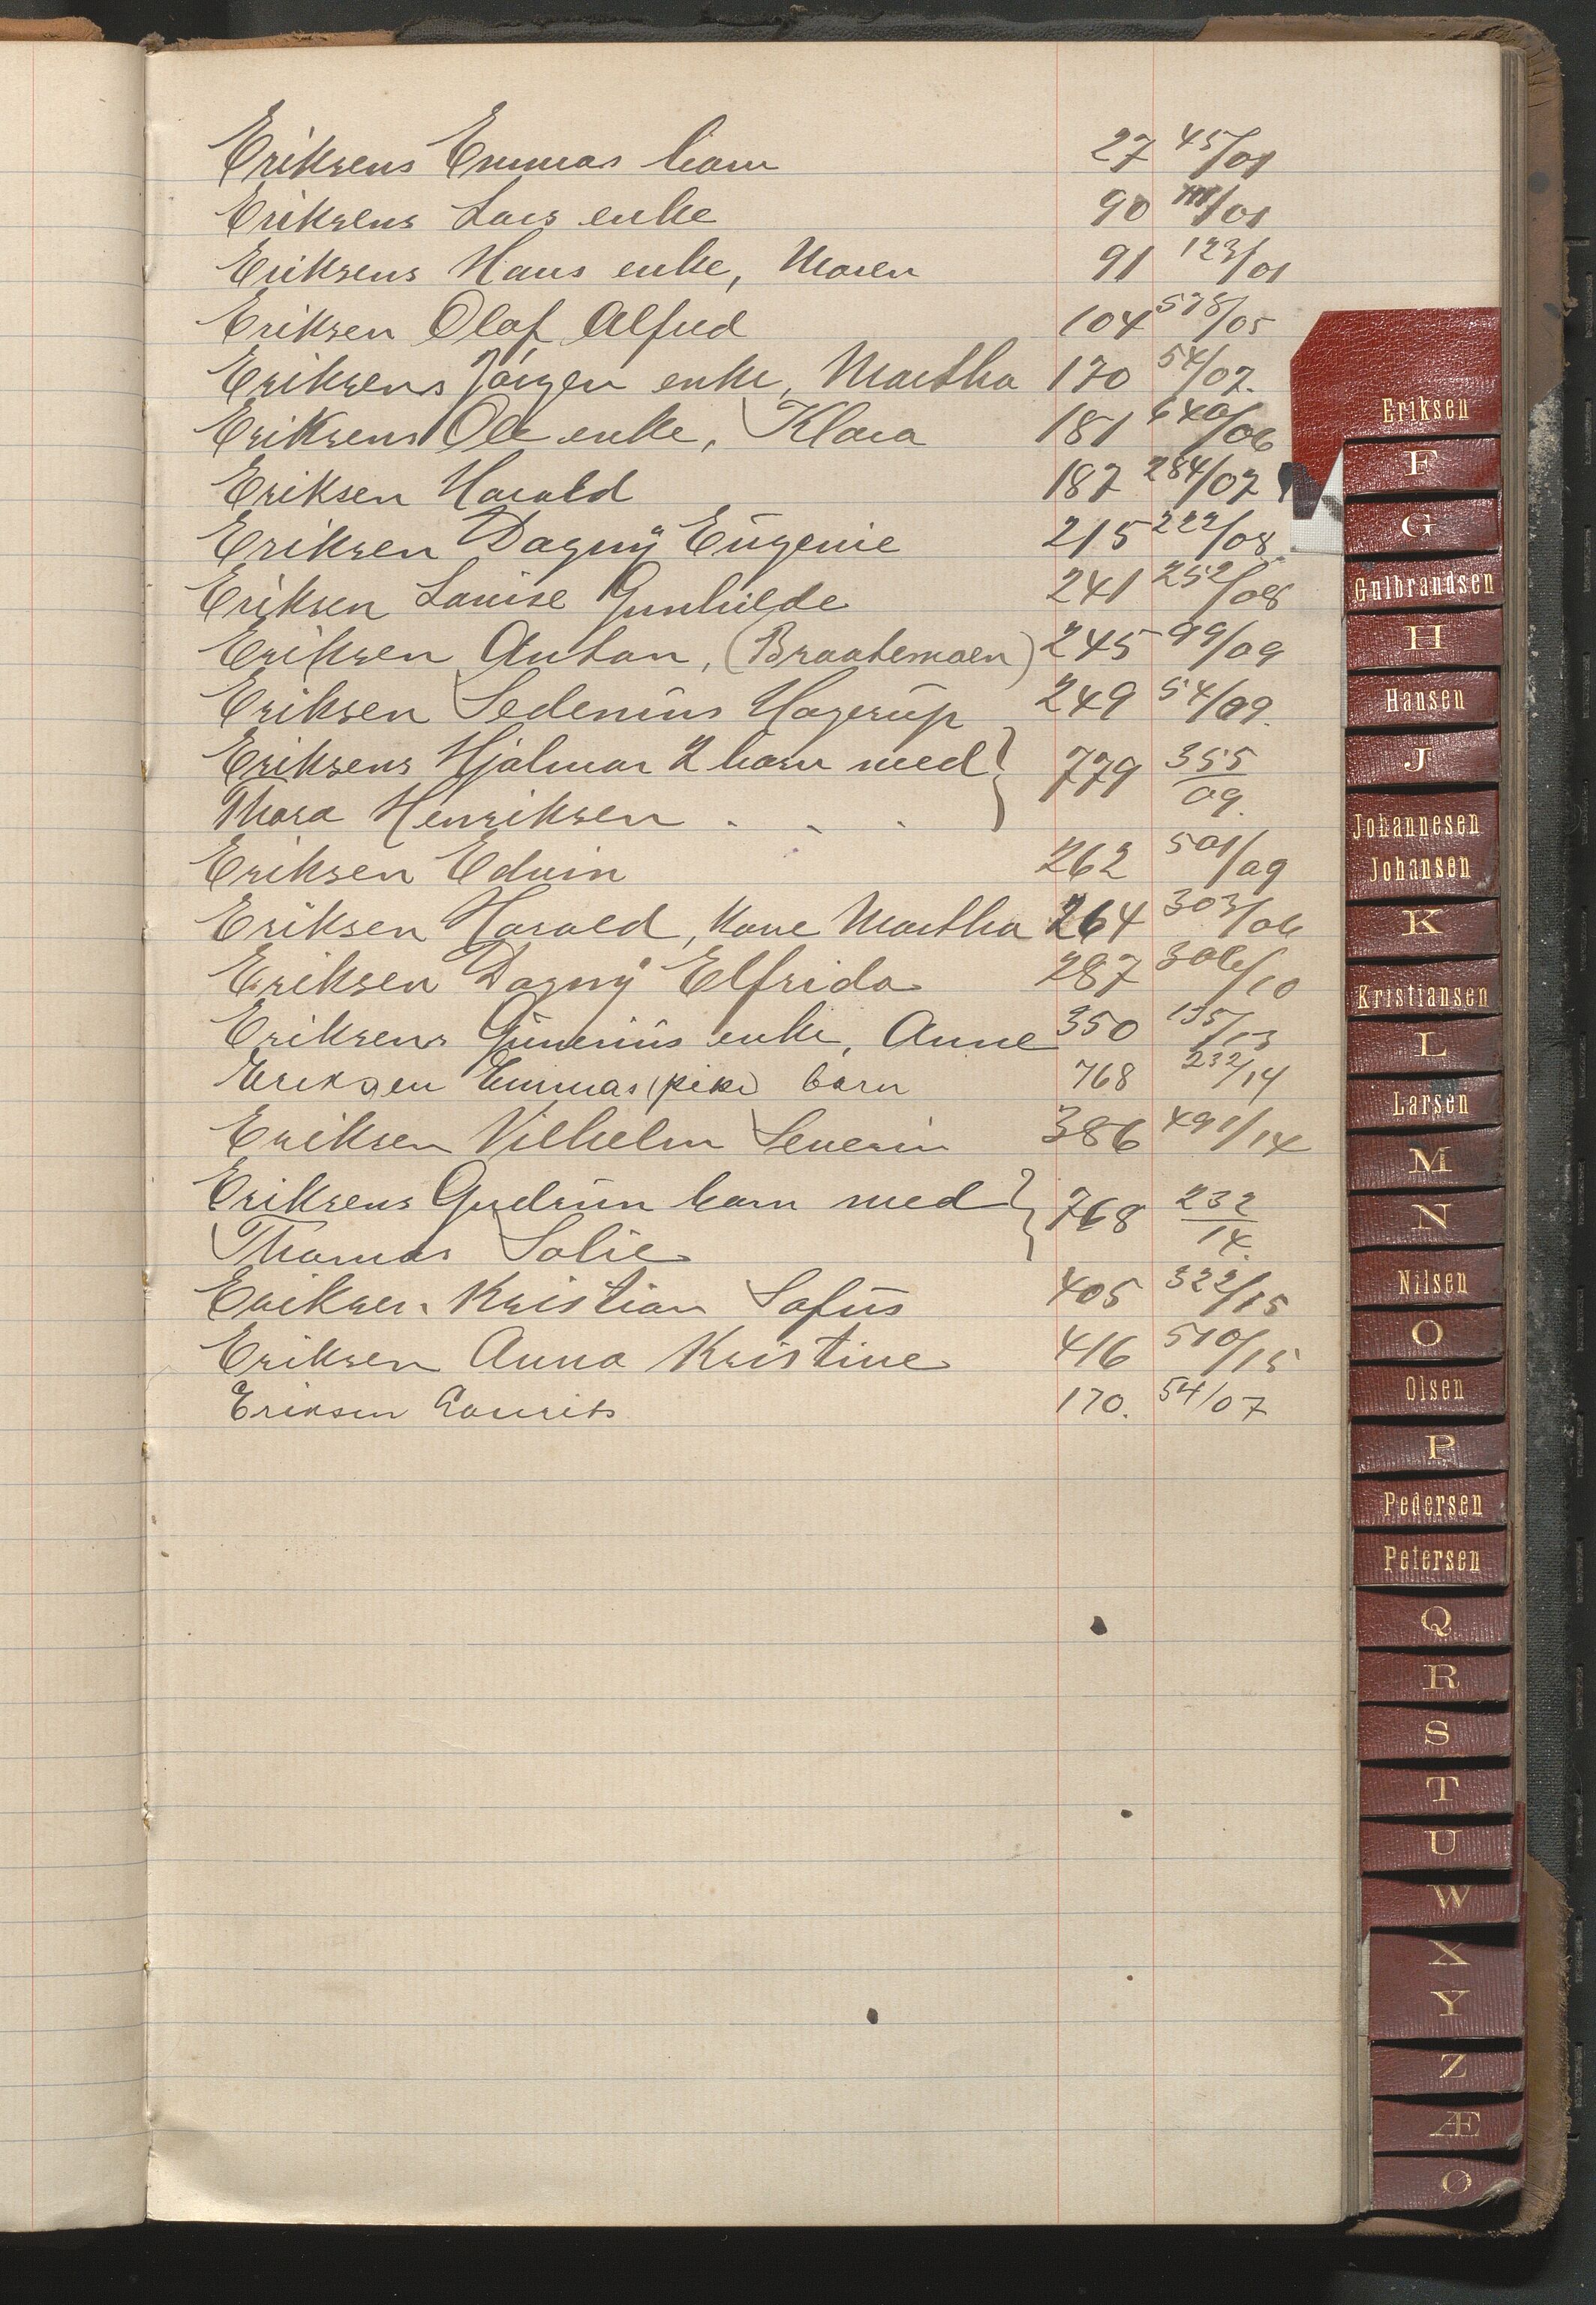 Eriksens Emmas barn 27 45/01
Eriksens Lars enke 90 /01
Eriksens Hans enke, Maren 91 123/01
Eriksen Olaf Alfred 104 578/05
Eriksens Jörgen enke, Martha 170 54/07.
Eriksens Ole enke, Klara 181 640/06
Eriksen Harald 187 284/07
Eriksen Dagny Eugenie 215 222/08.
Eriksen Louise Gunhilde 241 252/08
Eriksen Anton, (Braatemoen) 245 99/09
Eriksen Sedenius Hagerup 249 54/09.
Eriksens Hjalmar 2 barn med } 779 355/09.
Thora Henriksen . . .
Eriksen Edvin 262 501/09
Eriksen Harald, Kone Martha 264 303/06
Eriksen Dagny Elfrida 287 306/10
Eriksens Gunerius enke, Anne 350 135/13
Eriksen Emmas (pike) barn 768 232/14
Eriksen Vilhelm Severin 386 491/14
Eriksens Gudrun barn med } 768 232/14.
Thomas Solie
Eriksen Kristian Sofus 405 322/15
Eriksen Anna Kristine 416 510/15
Eriksen Laurits 170. 54/07
Eriksen
F
G
Gulbrandsen
H
Hansen
J
Johannesen
Johansen
K
Kristiansen
L
Larsen
M
N
Nilsen
O
Olsen
P
Pedersen
Petersen
Q
R
S
T
U
W
X
Y
Z
Æ
Ø